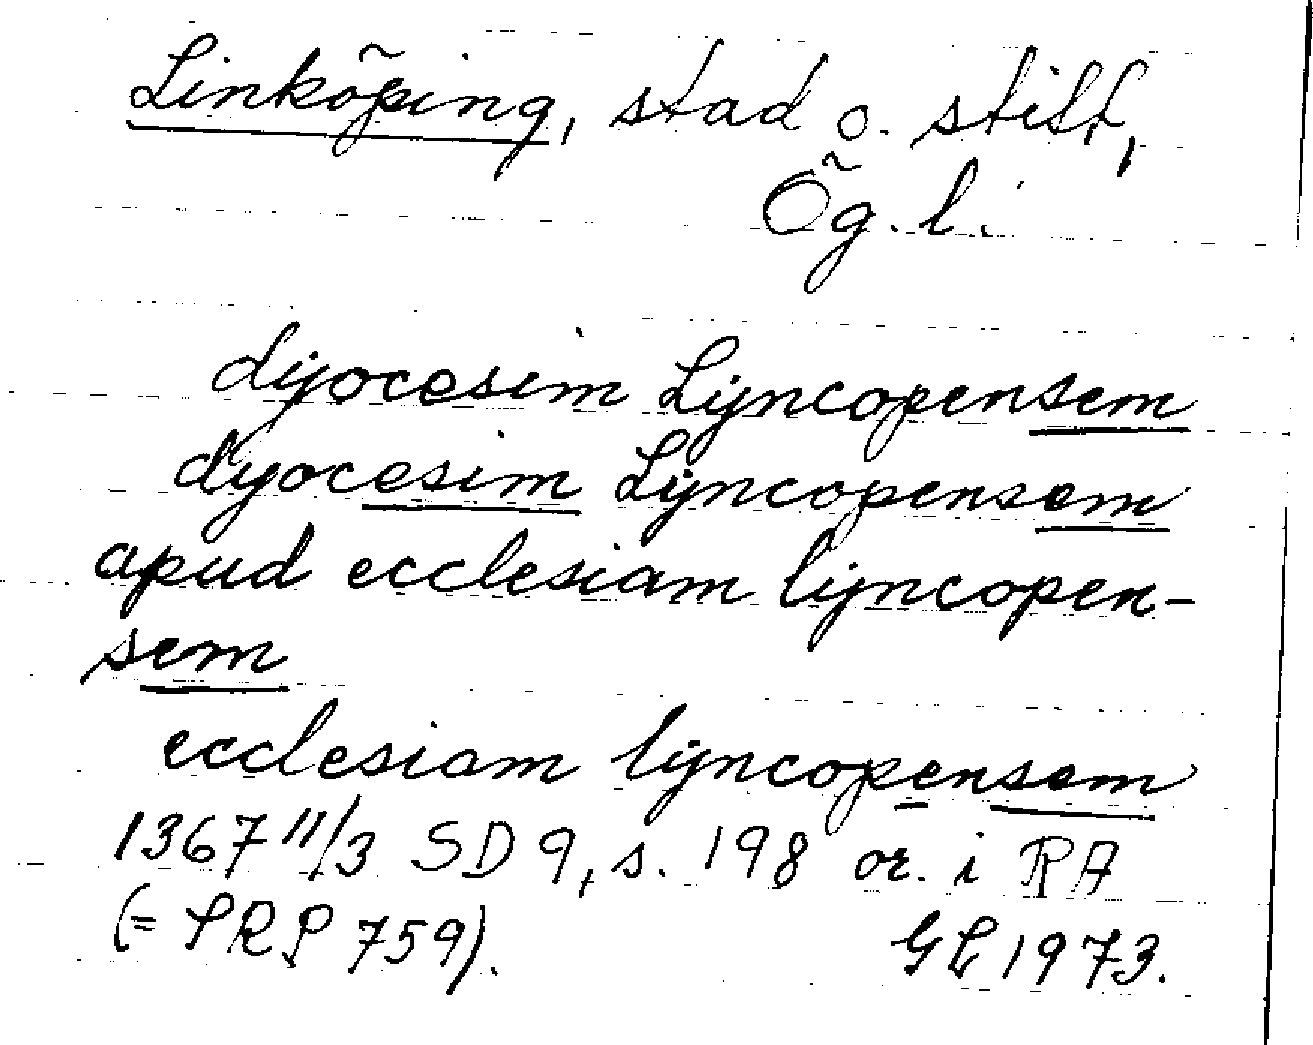 Linköping, stad o. stift,
Ög. l.
dyocesim Lyncopensem
dyocesim Lyncopensem
apud ecclesiam lyncopen-
sem
ecclesiam lyncopensem
1367 11/3 SD 9, s. 198 or. i RA
(= SRP 759).
GL 1973.